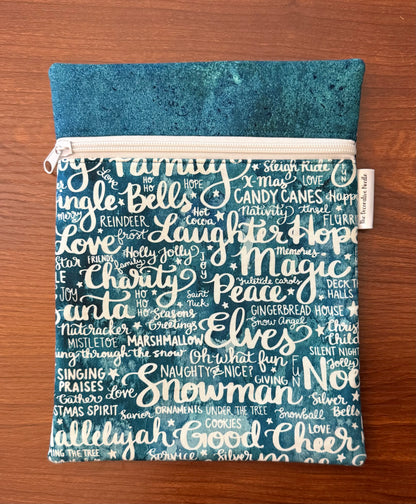 Family
Love
HO HO HOPE
Sleigh Ride
X-Mas
LOVE
Jingle Bells
HO
CANDY CANES
REINDEER
Hot Cocoa
Nativity
Angel
FLURR
Love
frost
Laughter
Hope
FRIENDS
Holly Jolly
family
JOY
Memories
Magic
Charity
Yuletide Carols
DECK T
HALLS
JOY
HO HO HO
Saint Nick
Peace
anta
Seasons Greetings
GINGERBREAD HOUSE
Snow Angel
Nutcracker
MISTLETOE
MARSHMALLOW
Elves
through the snow
Oh what fun
SILENT NIGHT
SINGING PRAISES
NAUGHTY or NICE?
GIVING
Jolly
No
Gather
Love
Snowman
Silver Bells
STMAS SPIRIT
Savior
ORNAMENTS UNDER THE TREE
Snowball
COOKIES
allelujah
Good Cheer
ING THE TREE
Service
Silver